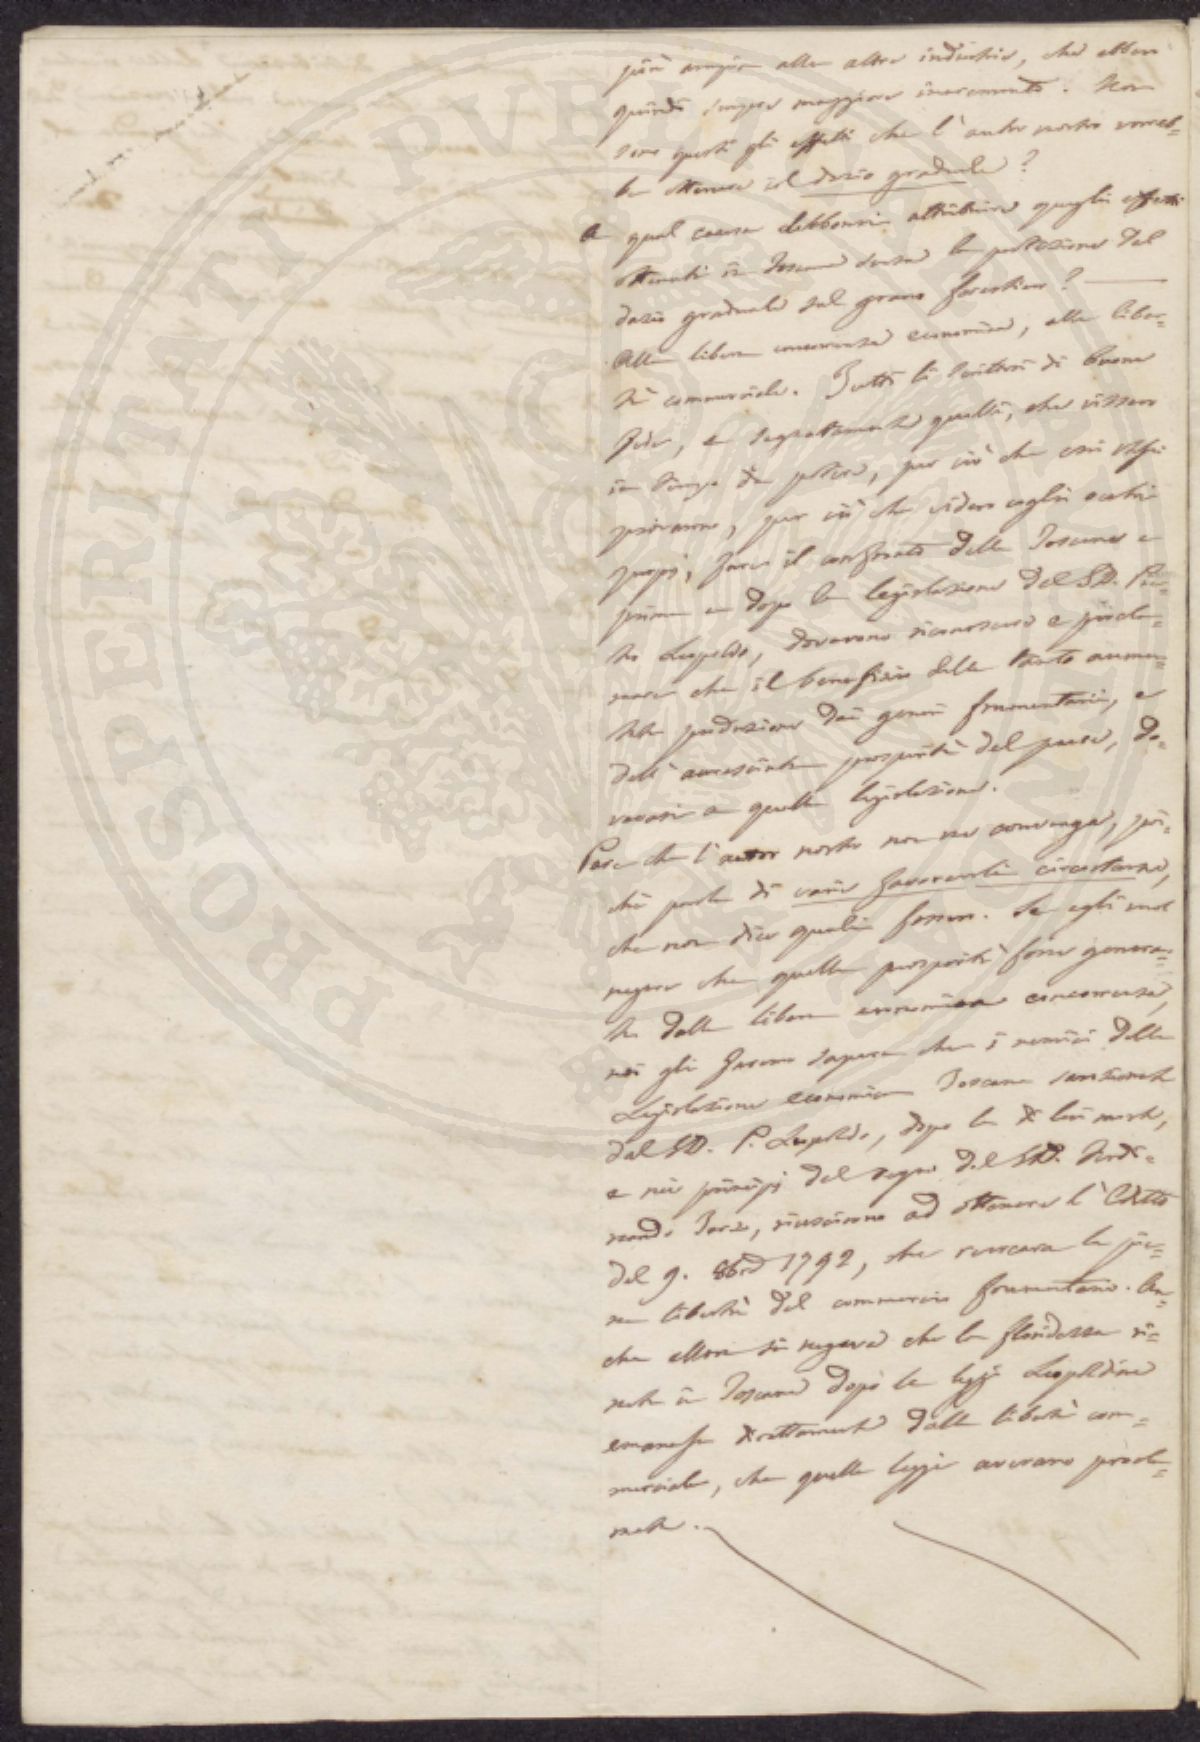 più ampia alle altre industrie, che ebber
quindi sempre maggiore incremento. Non
sono questi gli effetti che l'autor nostro vorreb=
be ottenere col dazio graduale?
A qual causa debbonsi attribuire quegli effetti
ottenuti in Toscana senza la protezione del
dazio graduale sul grano forestiero? —
Alla libera concorrenza economica, alla liber=
tà commerciale. Tutti li scrittori di buona
fede, e segnatamente quelli, che vissero
in tempo da potere, per ciò che essi stessi
provarono, per ciò che videro cogli occhi
propj, fare il confronto della Toscana e
prima e dopo la legislazione del GD. Pie=
tro Leopoldo, dovevano riconoscere e procla=
mare che il benefizio della tanto aumen=
tata produzione dei generi frumentarii, e
dell'accresciuta prosperità del paese, do=
vevasi a quella legislazione.
Pare che l'autor nostro non ne convenga, poi=
chè parla di varie favorevoli circostanze,
che non dice quali fossero. Se egli vuol
negare che quella prosperità fosse genera=
ta dalla libera economica concorrenza,
noi gli faremo sapere che i nemici della
Legislazione economica Toscana sanzionata
dal GD. P. Leopoldo, dopo la di lui morte,
e nei principj del regno del GD. Ferdi=
nando Terzo, riuscirono ad ottenere l'Editto
del 9. 8bre 1792, che revocava la pie=
na libertà del commercio frumentario. An=
che allora si negava che la floridezza ri=
nata in Toscana dopo le leggi Leopoldine
emanasse direttamente dalla libertà com=
merciale, che quelle leggi avevano procla=
mata.
PROSPERITATI PVBLICAE